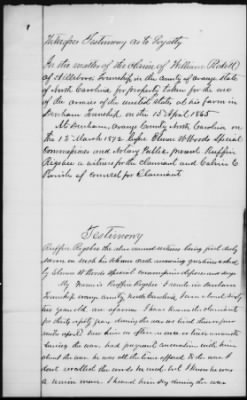 Interpos Testimony as to Loyalty
In the matter of the claim of William Rodell
of Hillsboro Township in the County of Orange State
of North Carolina for property taken for the use
of the armies of the United States at his farm in
Durham Township on the 15 April 1865
At Durham, Orange County North Carolina on
the 12 March 1872 before Woods special
Commissioner and Notary Public present Ruffin
Rigsbee a witness for the claimant and Calvin E
Parish of counsel for Claimant
Testimony
Ruffin Rigsbee the above named witness being first duly
sworn on such his oath and answering questions asked
by Woods special commissioner deposes and says
My Name is Ruffin Rigsbee I reside in Durham
Township Orange County North Carolina I am about sixty
two years old a farmer I know the claimant
for thirty eight years during the war he lived
him as often once or twice a week
during the war, had frequent conversation with him
about the war he was all the time opposed to the war I
don't recollect the words he used but I know he was
a union man I heard him say during the war